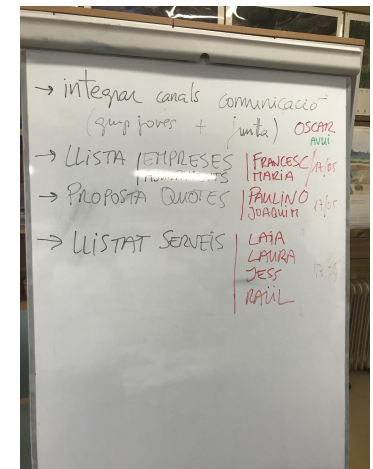 → integrar canals comunicació
(grup joves + junta) OSCAR
AVUI
→ LLISTA EMPRESES FRANCESC 17/05
MARIA
→ PROPOSTA QUOTES PAULINO 17/05
JOAQUIM
→ LLISTAT SERVEIS LAIA
LAURA
JESS
RAÜL